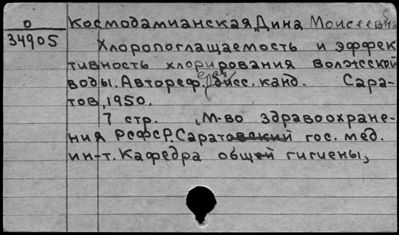 О Космодамианская, Дина Моисеевна
34905
Хлоропоглащаемость и эффек-
тивность хлорирования волжской
воды. Автореф. дисс. канд. Сара-
тов, 1950.
7 стр. , М-во здравоохране-
ния РСФСР. Саратовский гос. мед.
ин-т. Кафедра общей гигиены,